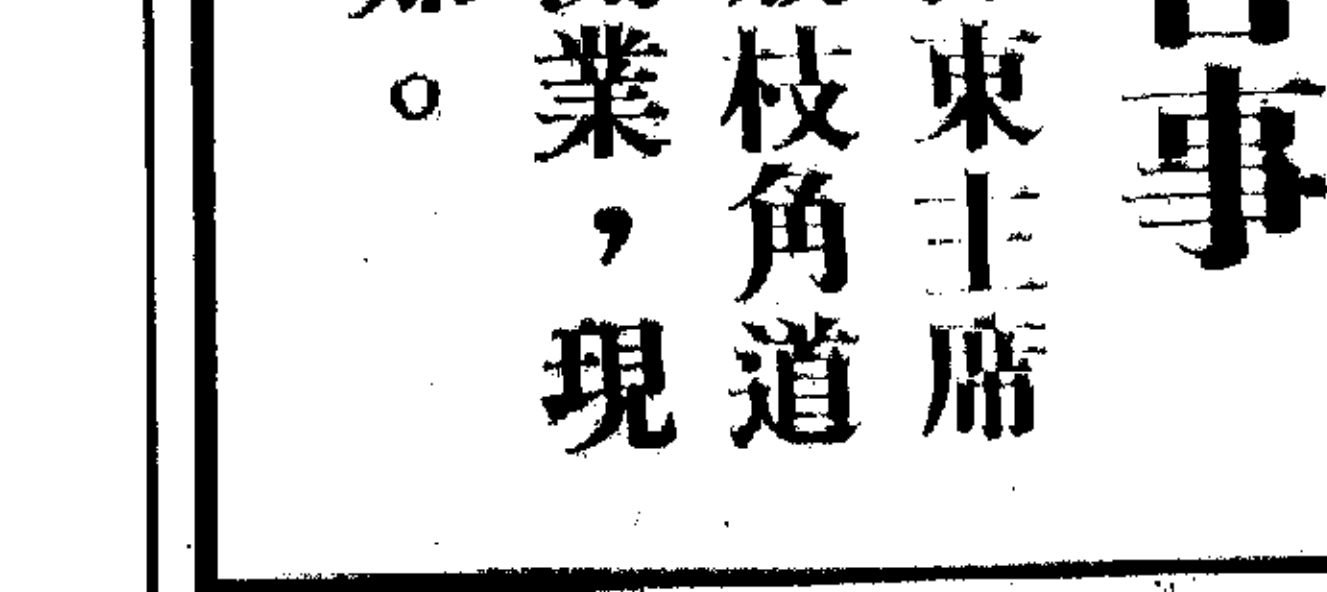 事
東主席
枝角道
業，現
。